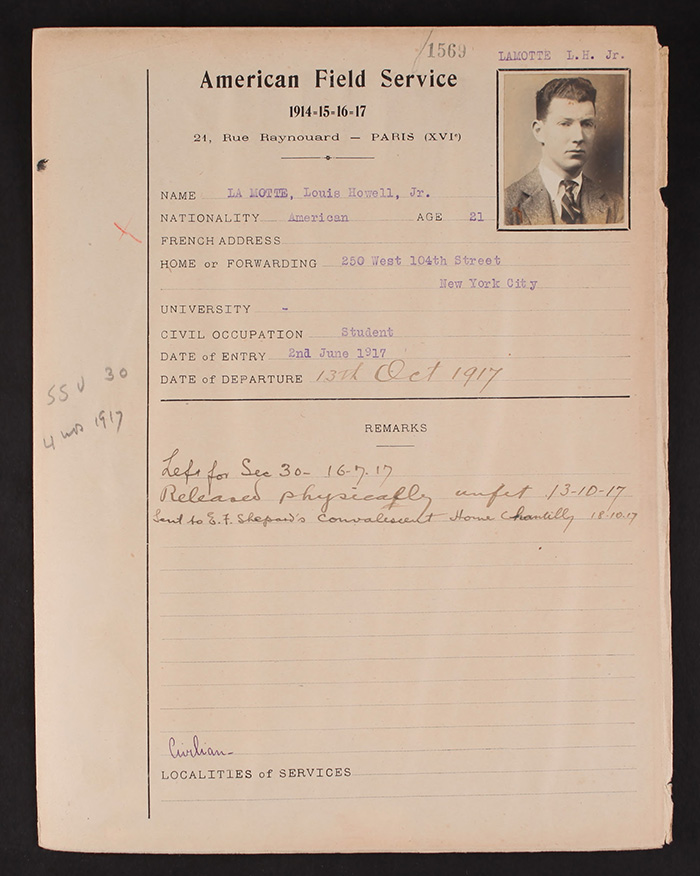 1569
LAMOTTE L.H. Jr.
American Field Service
1914=15=16=17
21, Rue Raynouard — PARIS (XVIe)
NAME LA MOTTE, Louis Howell, Jr.
NATIONALITY American AGE 21
FRENCH ADDRESS
HOME or FORWARDING 250 West 104th Street
New York City
UNIVERSITY -
CIVIL OCCUPATION Student
DATE of ENTRY 2nd June 1917
DATE of DEPARTURE 13th Oct 1917
SSU 30
4 mos 1917
REMARKS
Left for Sec 30- 16-7-17
Released physically unfit 13-10-17
Sent to E.F. Shepard's Convalescent Home Chantilly 18-10-17
Civilian-
LOCALITIES of SERVICES